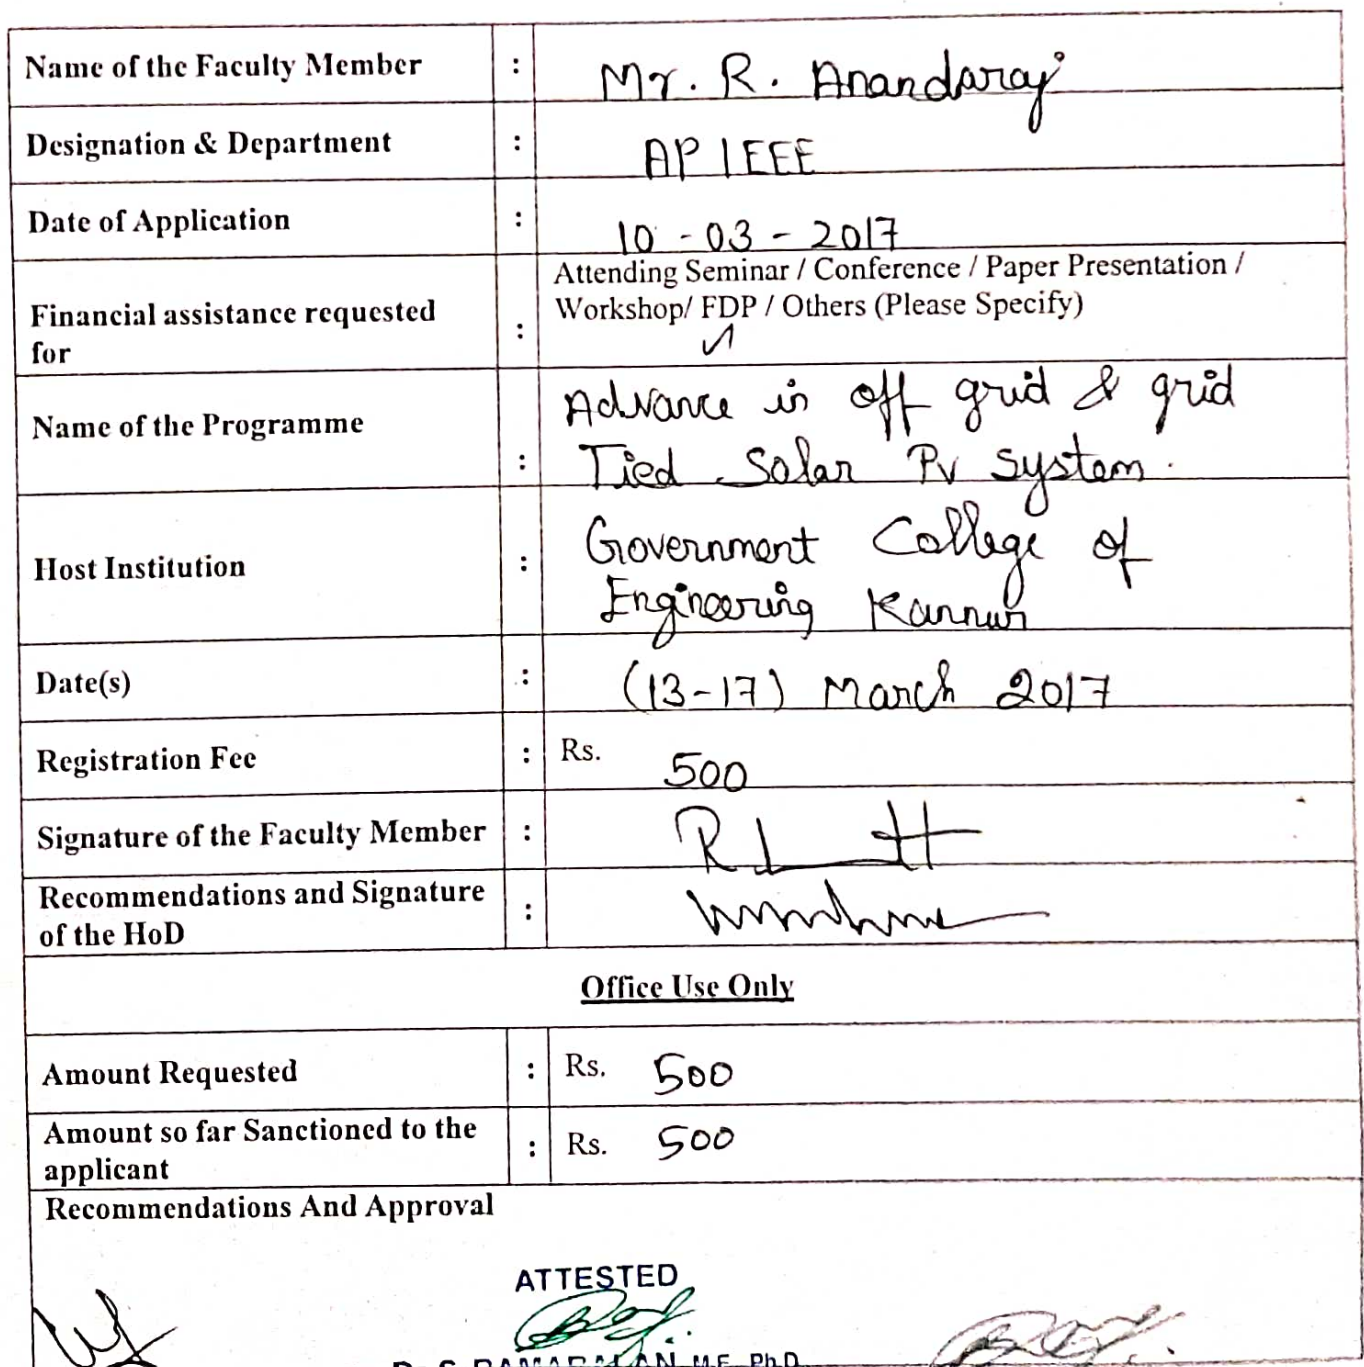 Name of the Faculty Member : Mr. R. Anandaraj
Designation & Department : AP/EEE
Date of Application : 10-03-2017
Attending Seminar / Conference / Paper Presentation /
Financial assistance requested Workshop/ FDP / Others (Please Specify)
for : ✓
Name of the Programme Advance in off grid & grid
: Tied Solar PV System.
Host Institution : Government College of
Engineering Kannur
Date(s) : (13-17) March 2017
Registration Fee : Rs. 500
Signature of the Faculty Member :
Recommendations and Signature
of the HoD :
Office Use Only
Amount Requested : Rs. 500
Amount so far Sanctioned to the
applicant : Rs. 500
Recommendations And Approval
ATTESTED
M.E., Ph.D